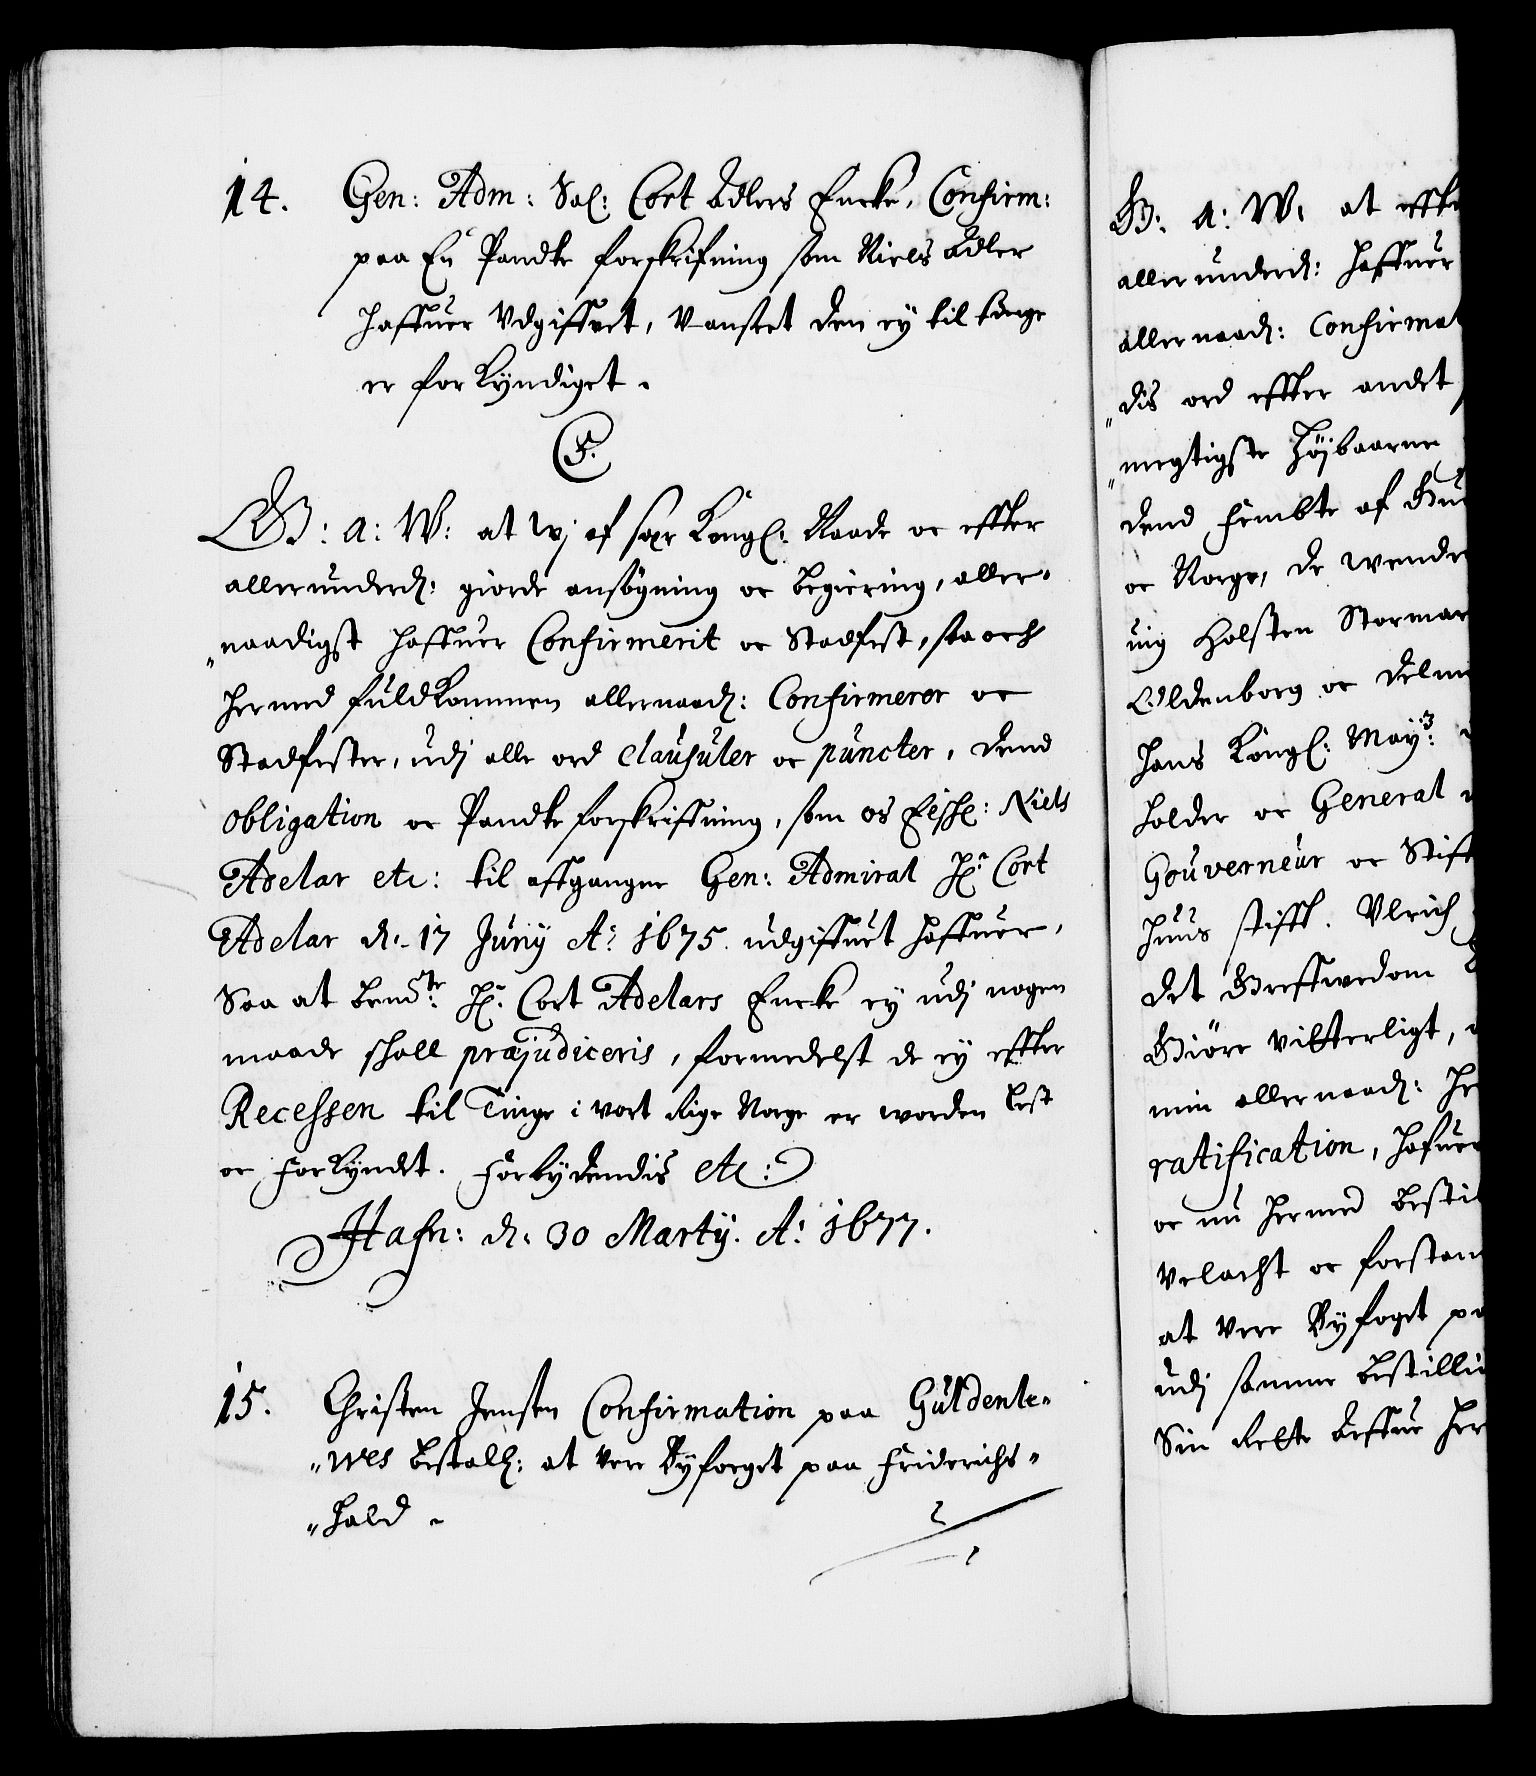 14. Gen: Adm: Sal: Cort Adlers Encke, Confirm:
paa En Pandte forskrifning som Niels Adler
haffuer Udgiffvet, Uanseet den ey til tinge
er forkyndiget.
C5.
G: A: W: at wj af sær Kongl: Naade oc effter
allerunderd: giorde ansögning oc begiering, aller-
"naadigst haffuer Confirmerit oc Stadfest, saa och
hermed fuldkommen allernaad: Confirmerer oc
Stadfester, udj alle ord clausuler oc puncter, dend
obligation oc Pandte forskriffning, som os Elskl: Niels
Adelar etc: til affgangne Gen: Admiral Hr: Cort
Adelar d: 17 Junij Ao: 1675. udgiffuet haffuer,
Saa at bemdte: Hr: Cort Adelars Encke ey udj nogen
maade shall præjudiceris, formedelst de ey effter
Recessen til Tinge i vort Rige Norge er worden Lest
oc forkyndt. Forbydendis etc:
Hafn: d: 30 Martij. Ao: 1677.
15. Christen Jensen Confirmation paa Güldenle-
"wes bestall: at vere Byfoeget paa Friderichs-
"hald.
G: A: W: at effte
allerunderd: haffuer
allernaad: Confirmat
"dis ord effter andet
"megtigste Höjbaarne
dend fembte af Gu
oc Norge, de wende
uig Holsten Stormar
Oldenborg oc Delm
hans Kongl: May:
holder oc General
Gouverneur oc Stift
huus stifft. Ulrich
det Greffwedom
Giöre vitterligt,
min allernaad: He
ratification, hafuer
oc nu hermed bestil
velacht oc forstan
at vere Byfoget pa
udj samme bestilli
Sin Rette Leffue her